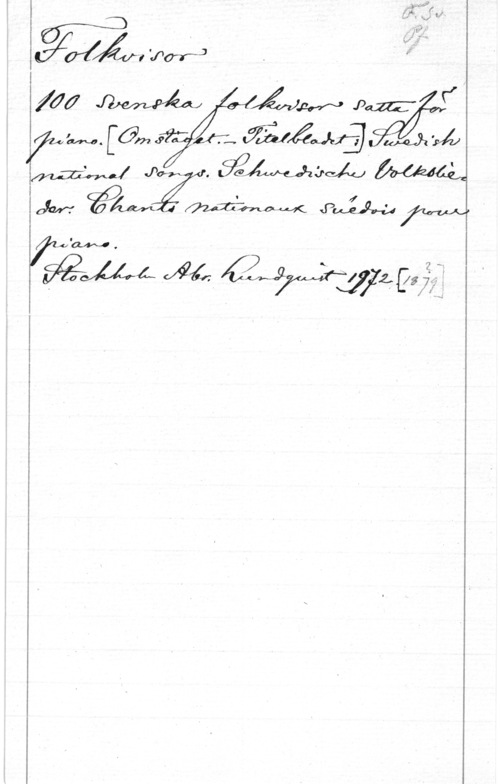 F. Sv.
Pf
Folkvisor
100 svenska folkvisor satta för
piano. [Omslaget.- Titelbladet:] Swedish
national songs. Schwedische Volkslie-
der. Chants nationaux suédois pour
piano.
Stockholm Abr. Lundquist 1972 [1879?]